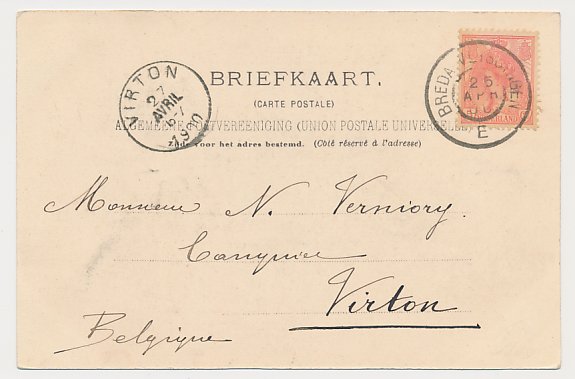 VIRTON
27
AVRIL
6-7
1900
BRIEFKAART.
(CARTE POSTALE)
ALGEMEENE POSTVEREENIGING (UNION POSTALE UNIVERSELLE)
Zijde voor het adres bestemd. (Côté réservé à l'adresse)
BREDA-VLISSINGEN
26
APR
00
E
NEDERLAND
Monsieur N. Verniory.
Virton
Belgique